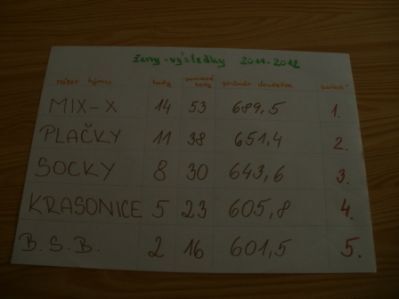 ženy - výsledky 2011-2012
název týmu body pomocné body průměr družstva pořadí
MIX-X 14 53 689,5 1.
PLAČKY 11 38 651,4 2.
SOCKY 8 30 643,6 3.
KRASONICE 5 23 605,8 4.
B.S.B. 2 16 601,5 5.